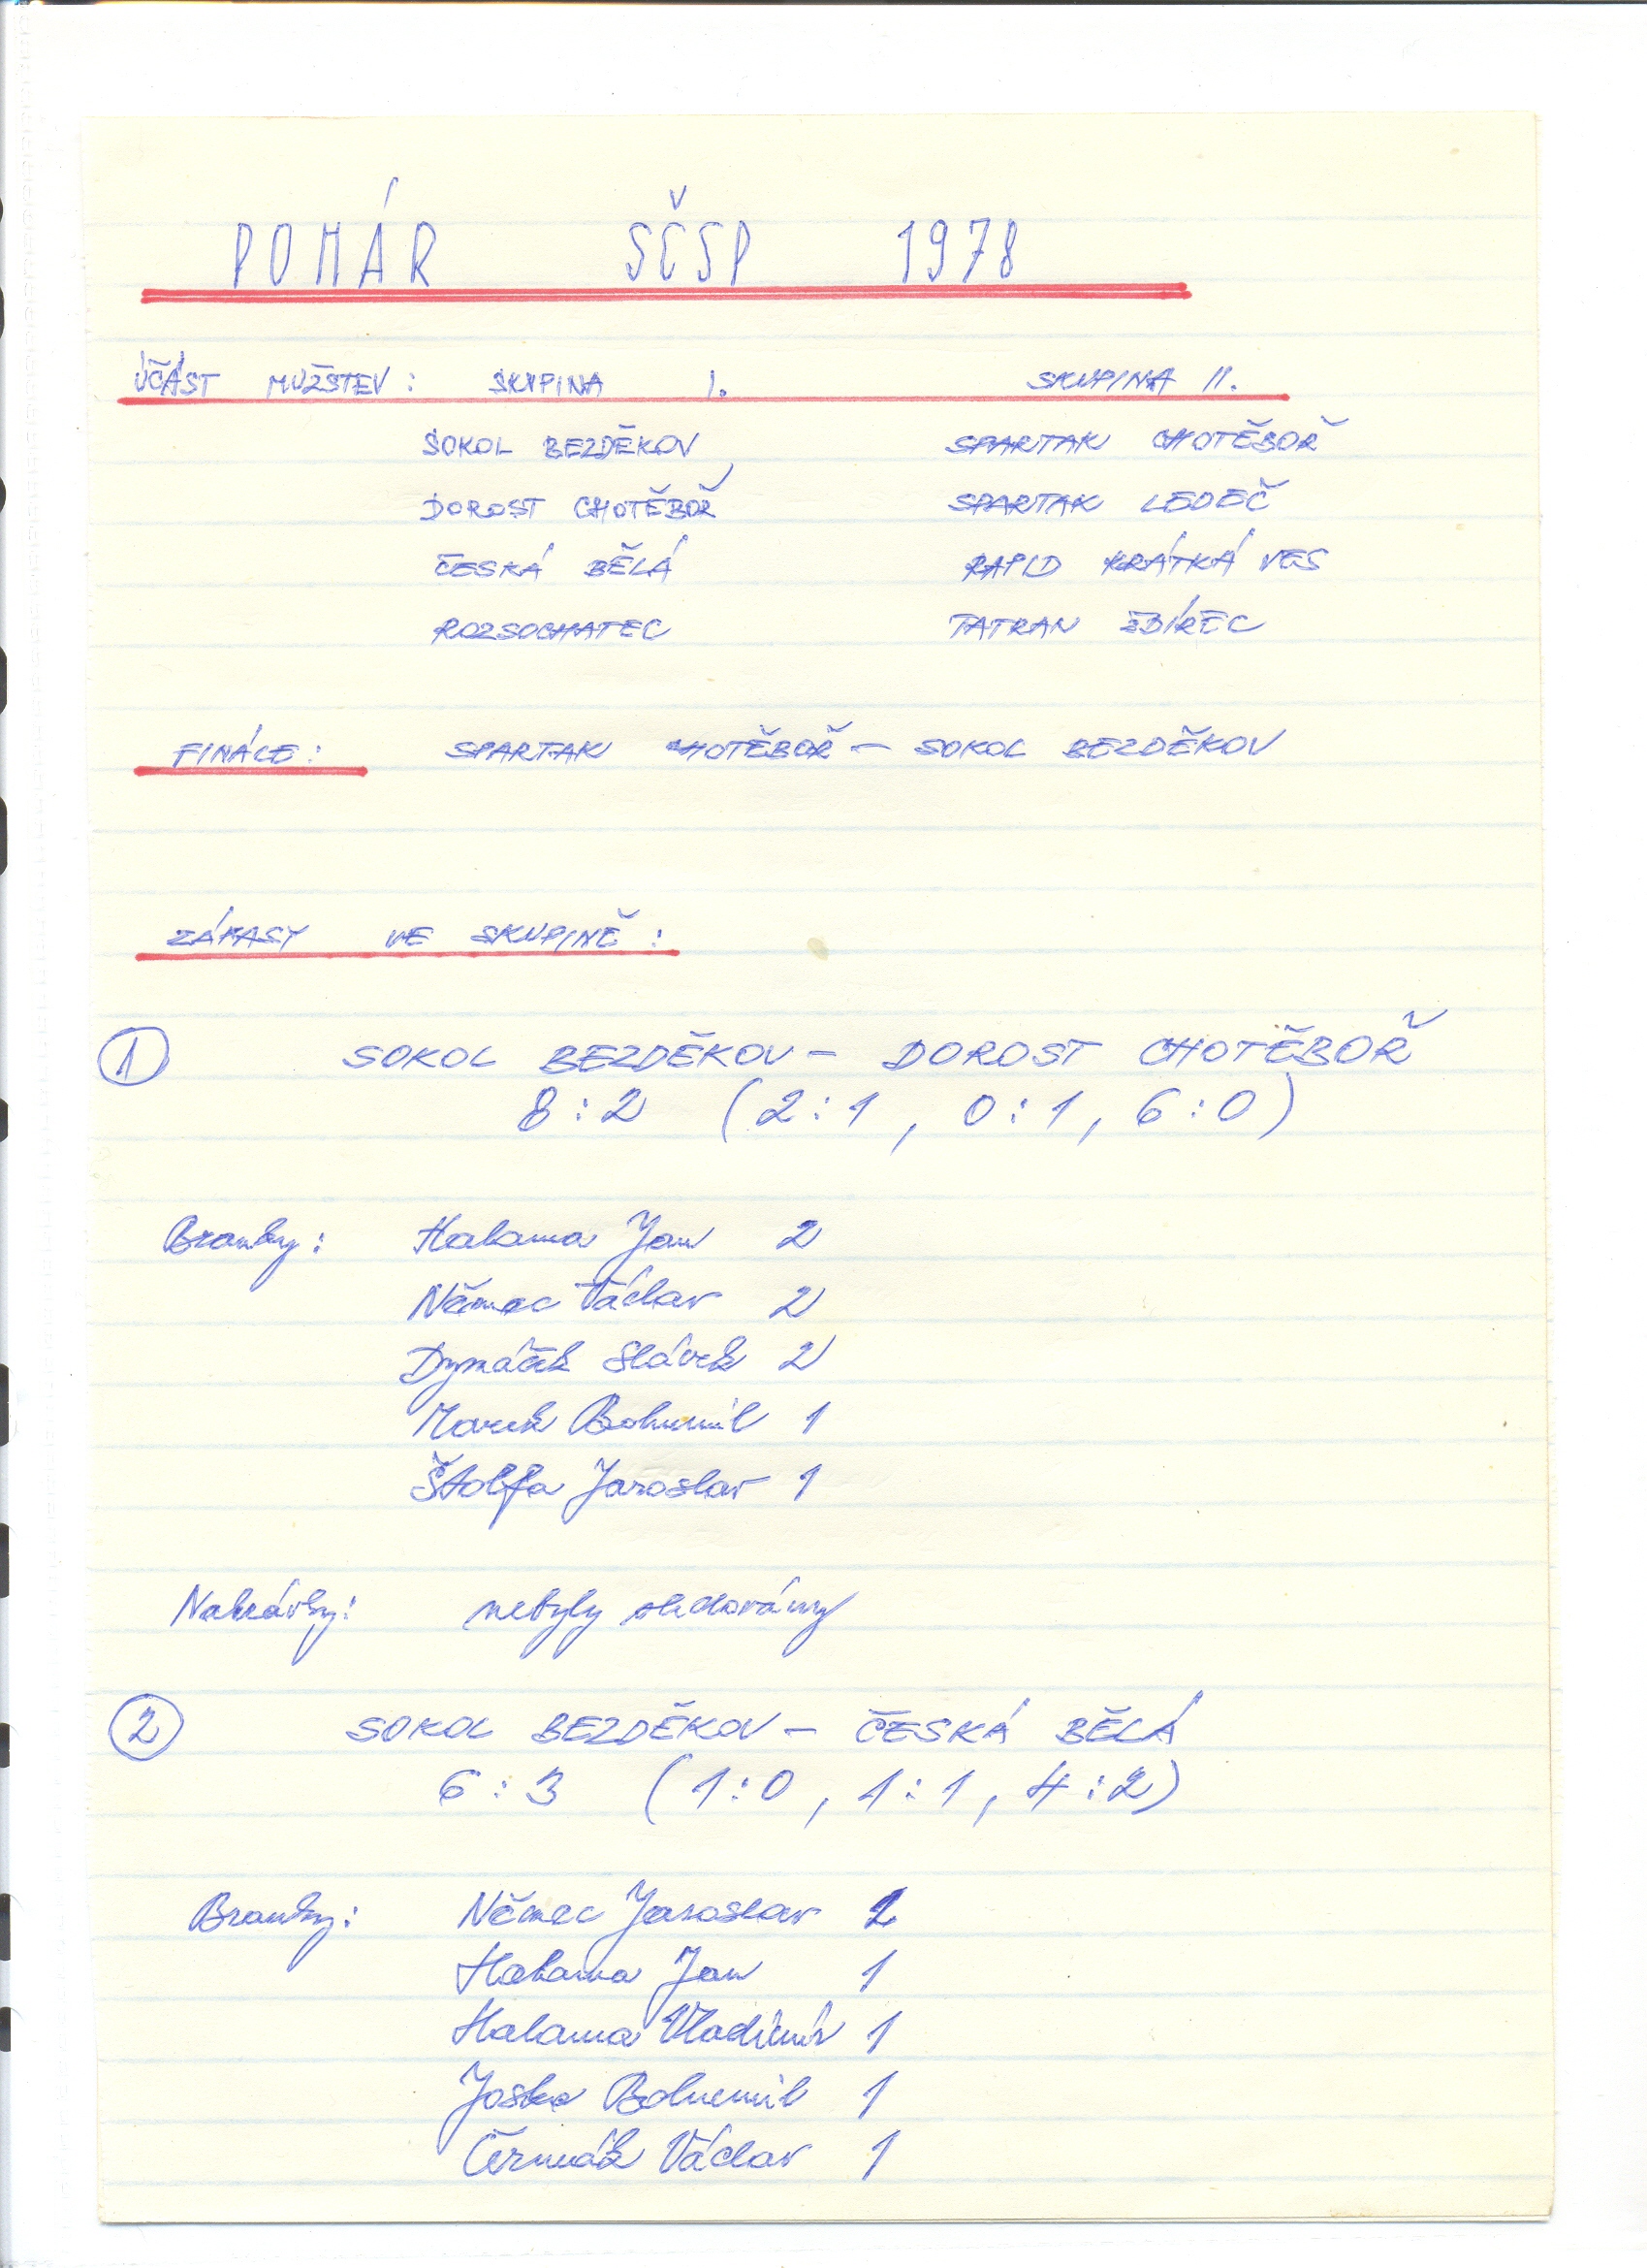 POHÁR SČSP 1978
ÚČÁST MUŽSTEV: SKUPINA I. SKUPINA II.
SOKOL BEZDĚKOV SPARTAK CHOTĚBOŘ
DOROST CHOTĚBOŘ SPARTAK LEDEČ
ČESKÁ BĚLÁ RAPID KRÁTKÁ VES
ROZSOCHATEC TATRAN ŽDÍREC
FINÁLE: SPARTAK CHOTĚBOŘ – SOKOL BEZDĚKOV
ZÁPASY VE SKUPINĚ:
1 SOKOL BEZDĚKOV – DOROST CHOTĚBOŘ
8:2 (2:1, 0:1, 6:0)
Branky: Halama Jan 2
Němec Václav 2
Dymáček Slávek 2
Marek Bohumil 1
Štolfa Jaroslav 1
Nahrávky: nebyly sledovány
2 SOKOL BEZDĚKOV – ČESKÁ BĚLÁ
6:3 (1:0, 1:1, 4:2)
Branky: Němec Jaroslav 2
Halama Jan 1
Halama Vladimír 1
Joska Bohumil 1
Čermák Václav 1